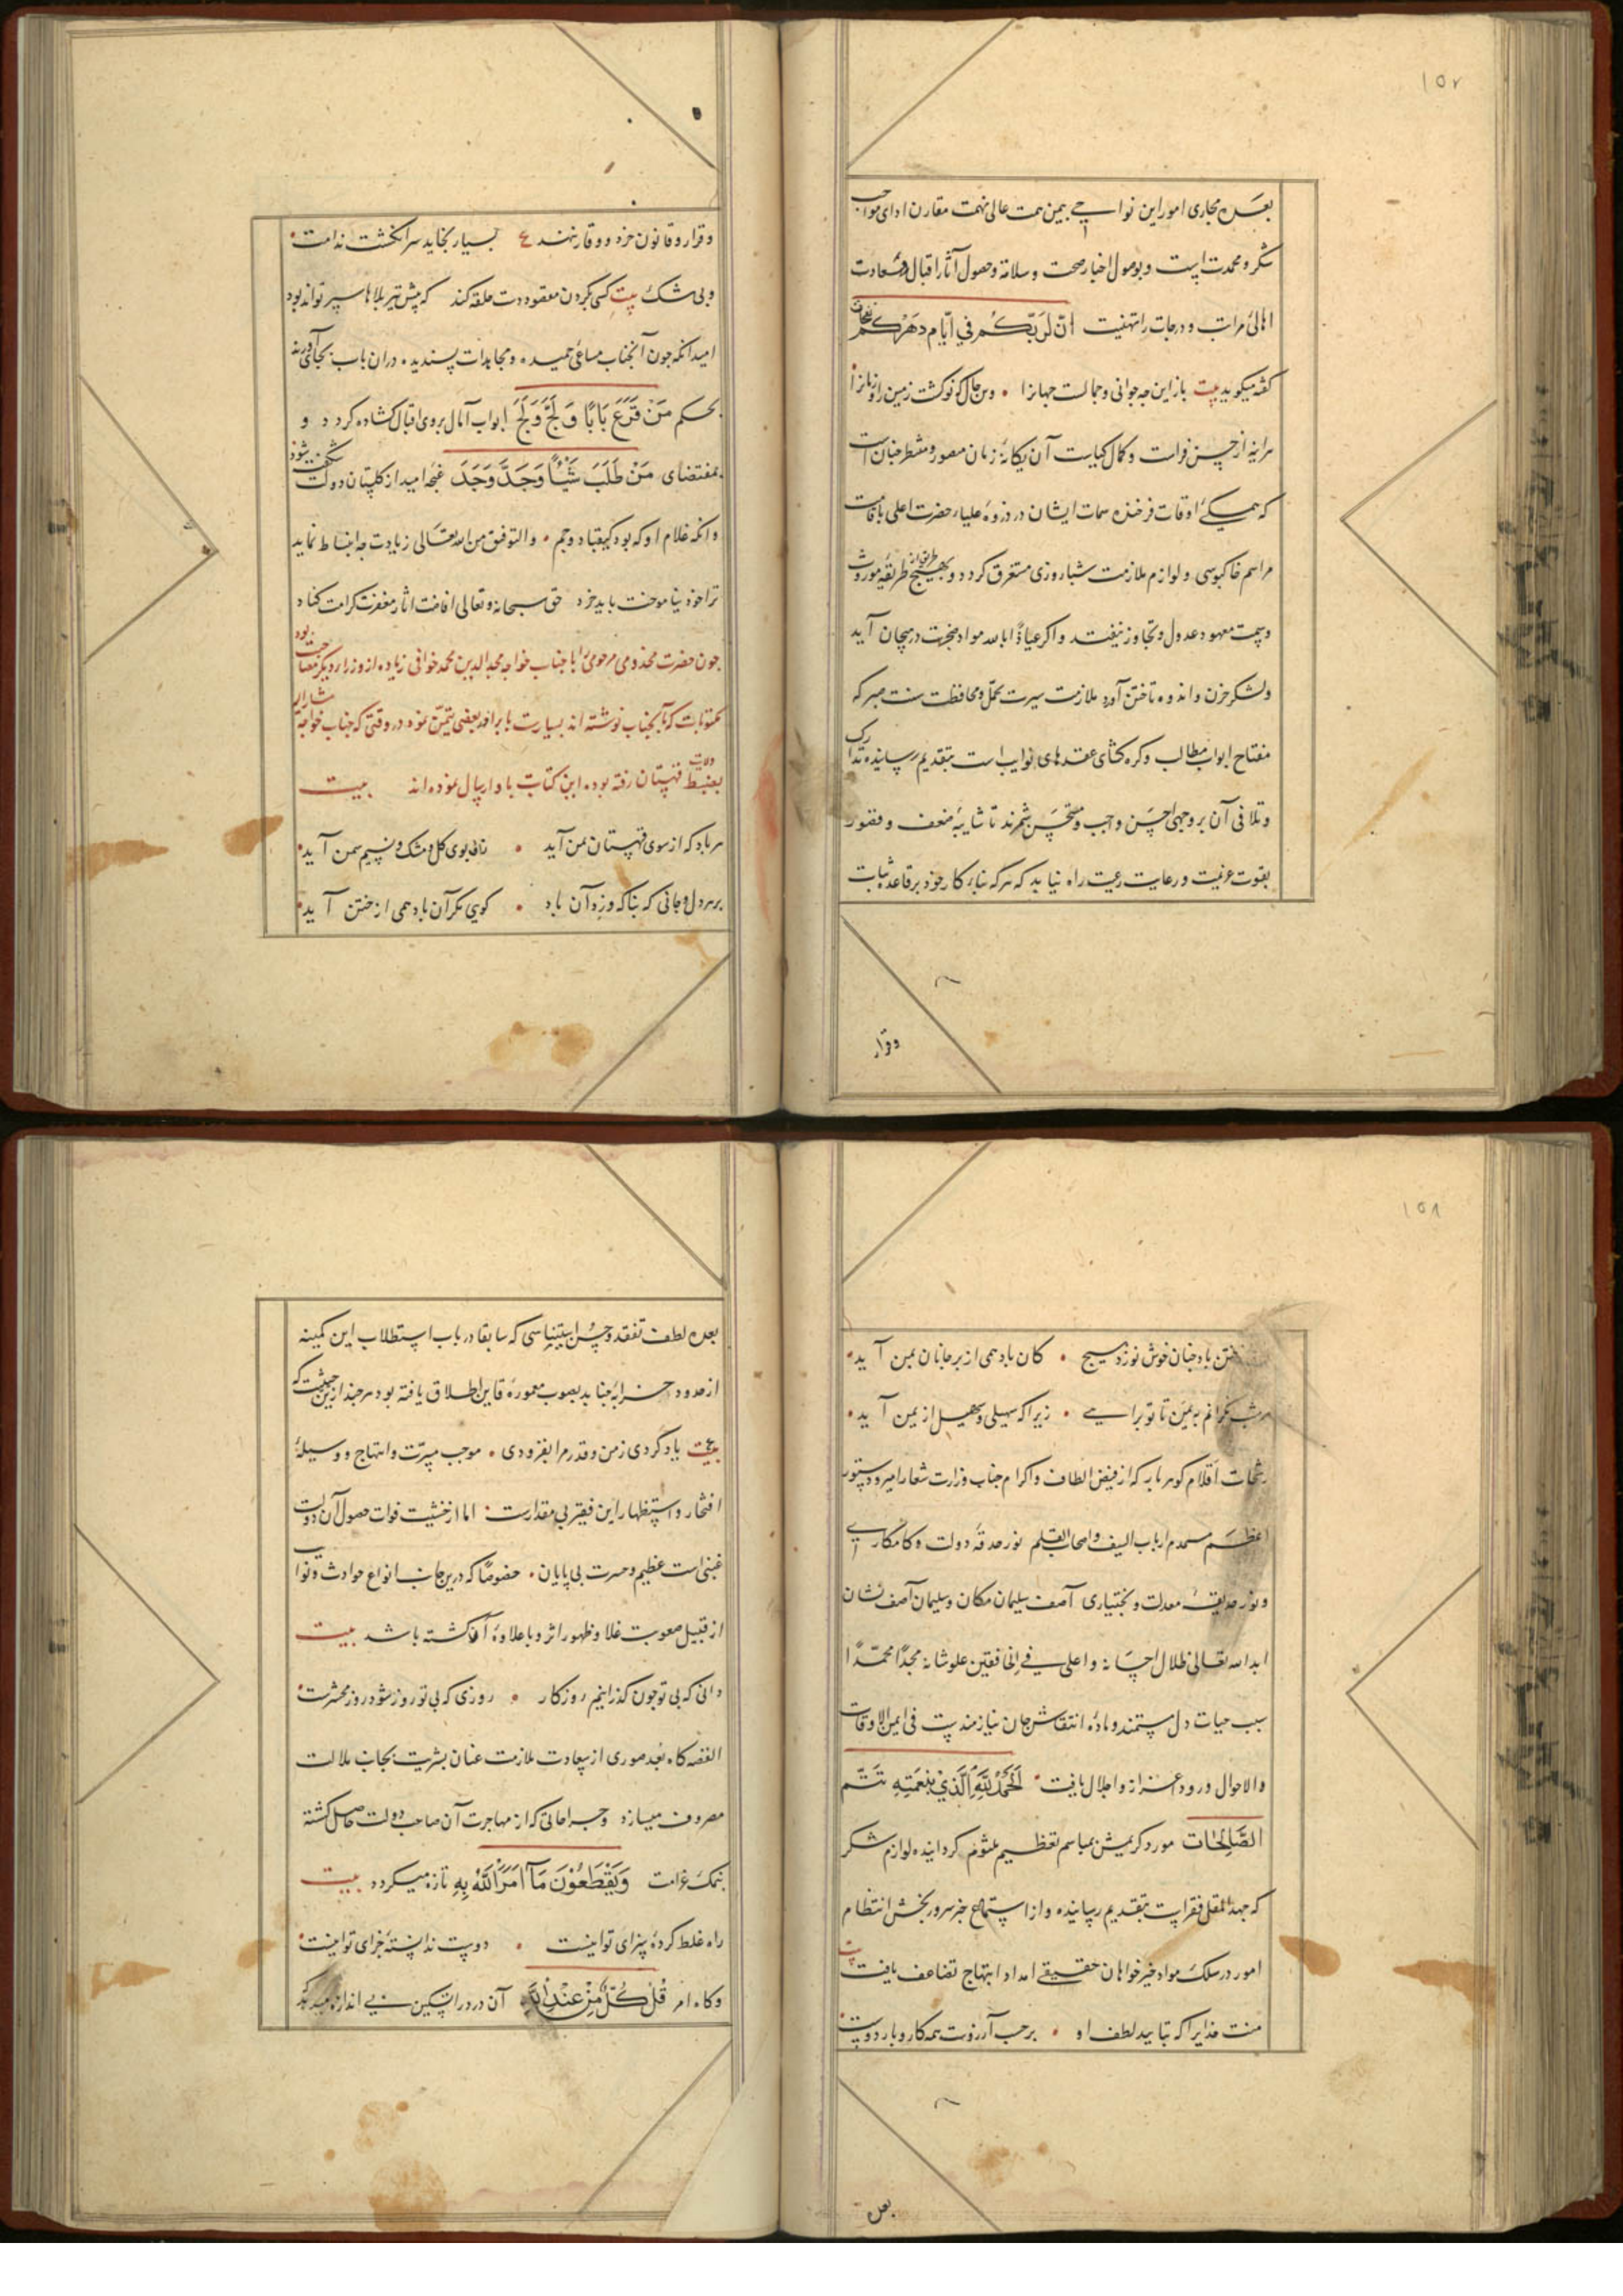 ۱۵۷
بعده مجاری امور این نواحی بیمن همت عالی نهمت مقارن ادای مواجب
شکر و محمدت است و بوصول اخبار صحت و سلامة و حصول آثار اقبال و سعادت
اهالی مراتب و درجات را تهنیت انّ لربّکم فی ایّام دهرکم نفحات
کفته میکوید بیت باز این چه جوانی و جمالست جهانرا • وین حال که نو کشت زمین را و زمانرا
هر آینه از حسن فراست و کمال کیاست آن یکانهٔ زمان متصور و منتظر چنان است
که همکی اوقات فرخنده سمات ایشان در ذروهٔ علیاء حضرت اعلی باقامت
مراسم خاکبوسی و لوازم ملازمت شباروزی مستغرق کردد و بهیچ طریق از طریقهٔ موروث
و سمت معهود عدول و تجاوز نیفتد و اکر عیاذًا بالله مواد ضجرت در هیجان آید
و لشکر حزن و اندوه تاختن آورد ملازمت سیرت تحمّل و محافظت سنت صبر که
مفتاح ابواب مطالب و کره کشای عقدهای نوایب است بتقدیم رسانیده تدارک
و تلافی آن بر وجهی احسن واجب و مستحسن شمرند تا شایبهٔ ضعف و فتور
بقوت عزیمت و رعایت رعیت راه نیابد که هرکه بناء کار خود بر قاعده ثبات
وقرار
و قرار و قانون حزم و وقار نهند ع بسیار بخاید سر انکشت ندامت •
و بی شک بیت کسی بکردن مقصود دست حلقه کند که پیش تیر بلاها سپر تواند بود
امید انکه چون آنجناب مساعئ حمیده و مجاهدات پسندیده در ان باب بجای آورند
بحکم مَنْ قَرَعَ بَابًا وَ لَجَّ وَلَجَ ابواب آمال بروی اقبال کشاده کردد و
بمقتضای مَنْ طَلَبَ شَیْئًا وَجَدَّ وَجَدَ غنچهٔ امید از کلستان دولت شکفته شود
و انکه غلام او که بود کیقباد و جم • و التوفیق من الله تعالی زیادت چه انبساط نماید
ترا خود نیاموخت باید خرد حق سبحانه و تعالی افاضت اثار مغفرت کرامت کناد
چون حضرت مخدومی مرحومی را با جناب خواجه مجد الدین محمد خوافی زیاده از وزراء دیکر مصاحبت بود
مکتوبات که بآنجناب نوشته اند بسیارست بایراد بعضی تیمّن نمود در وقتی که جناب خواجه مشار الیه
بضبط ولایت قهستان رفته بود این کتابت باو ارسال نموده اند بیت
هر باد که از سوی قهستان بمن آید • نافه بوی کل و مشک و نسیم سمن آید •
بر هر دل و جانی که بناکه وزد آن باد • کویی مکر آن باد همی از ختن آید •
۱۵۸
ختن باد چنان خوش نوزد هیچ • کان باد همی از بر جانان بمن آید •
هر شب نکرانم به یمن تا تو برایی • زیرا که سهیلی و سهیل از یمن آید •
رشحات اقلام کوهر بار که از فیض الطاف و اکرام جناب وزارت شعار امیر و دستور
اعظم ممهد ارباب السیف و اصحاب القلم نور حدقهٔ دولت و کامکاری
و نور حدیقهٔ معدلت و بختیاری آصف سلیمان مکان و سلیمان آصف نشان
ابد الله تعالی ظلال احسانه و اعلی فی الخافقین علو شانه مجدًا محمّدًا
سبب حیات دل مستمند و مادهٔ انتقاش جان نیازمند است فی ایمن الاوقات
و الاحوال ورود اعزاز و اجلال یافت • اَلْحَمْدُ لِلّٰهِ الَّذِیْ بِنِعْمَتِهِ تَتِمُّ
الصَّالِحَات مورد کریمش بمباسم تعظیم ملثوم کردانیده لوازم شکر
که جهد المقل فقراست بتقدیم رسانیده و از استماع خبر سرور بخش انتظام
امور در سلک مواد خیر خواهان حقیقی امداد ابتهاج تضاعف یافت بیت
منت خدایرا که بتایید لطف او • بر حسب آرزوست همه کار و بار دوست •
بعده
بعده لطف تفقد و حسن استیناسی که سابقا در باب استطلاب این کمینه
از حدود خرابهٔ جنابد بصوب معمورهٔ قاین اطلاق یافته بود هر چند ازین حیثیت که
بیت یاد کردی ز من و قدر مرا بفزودی • موجب مسرّت و ابتهاج و وسیلهٔ
افتخار و استظهار این فقیر بی مقدارست : اما از خشیت فوات حصول آن دولت
غبنی است عظیم و حسرت بی پایان • خصوصًا که درین جانب انواع حوادث و نوایب
از قبیل صعوبت غلا و ظهور اثر وبا علاوهٔ آن کشته باشد بیت
دانی که بی تو چون کذرانیم روزکار • روزی که بی تو روز شود روز محشرست •
القصه کاه بعد صوری از سعادت ملازمت عنان بشریت بجانب ملالت
مصروف میسازد و جراحاتی که از مهاجرت آن صاحب دولت حاصل کشته
بنمک غرامت وَیَقْطَعُوْنَ مَآ اَمَرَ اللّٰهُ بِهِ تازه میکردد بیت
راه غلط کردهٔ سزای تو اینست • دوست ندانستهٔ جزای تو اینست •
و کاه امر قُلْ کُلٌّ مِنْ عِنْدِ اللّٰهِ آن درد را تسکین بی اندازه میدهد